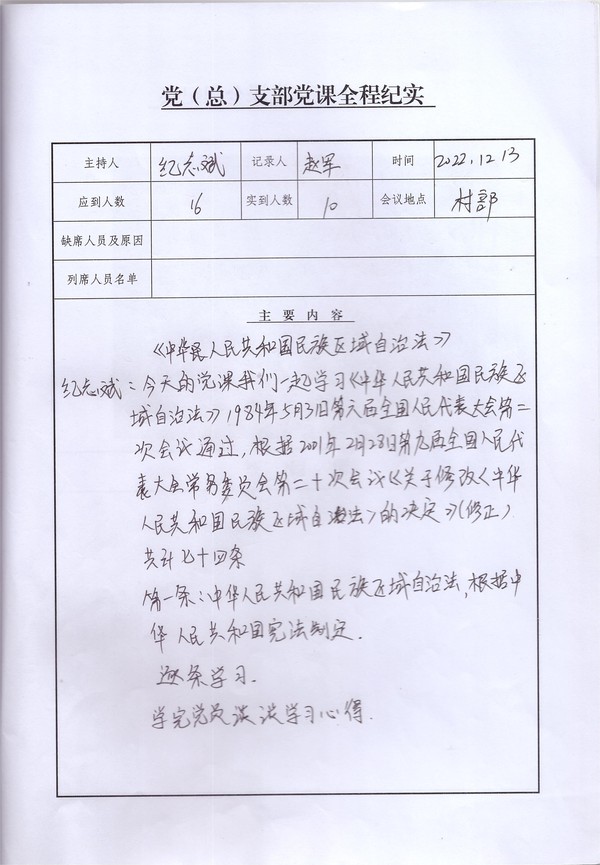 党（总）支部党课全程纪实
主持人 纪志斌 记录人 赵军 时间 2022.12.13
应到人数 16 实到人数 10 会议地点 村部
缺席人员及原因
列席人员名单
主要内容
《中华人民共和国民族区域自治法》
纪志斌：今天的党课我们一起学习《中华人民共和国民族区
域自治法》1984年5月31日第六届全国人民代表大会第二
次会议通过，根据2001年2月28日第九届全国人民代
表大会常务委员会第二十次会议《关于修改《中华
人民共和国民族区域自治法》的决定》（修正）
共计七十四条
第一条：中华人民共和国民族区域自治法，根据中
华人民共和国宪法制定.
逐条学习.
学完党员谈谈学习心得.